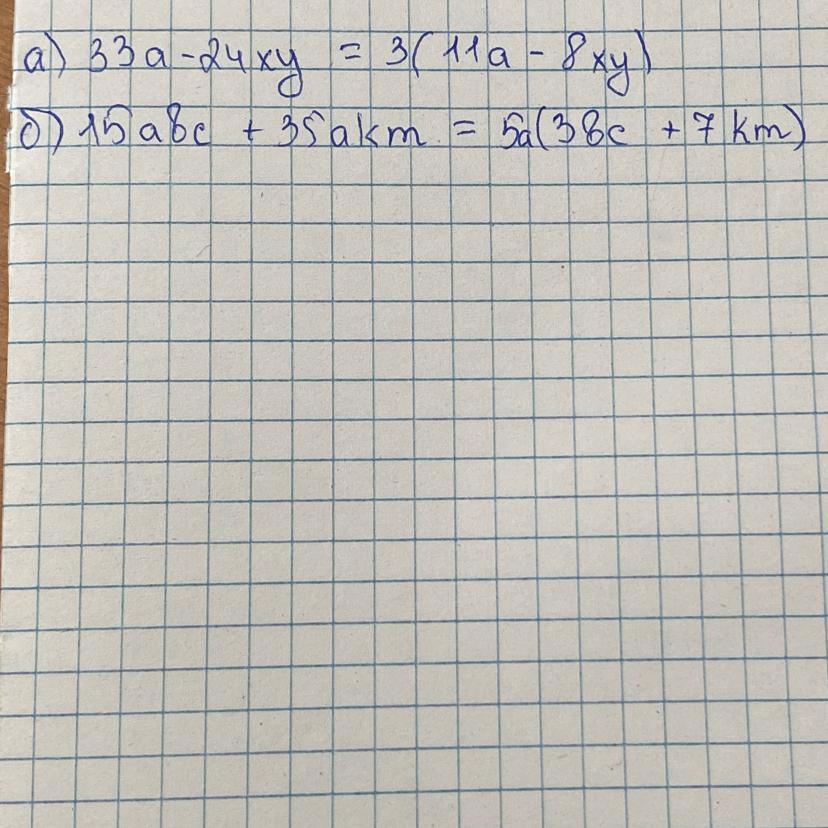 а) 33a - 24xy = 3(11a - 8xy)
б) 15abc + 35akm = 5a(3bc + 7km)